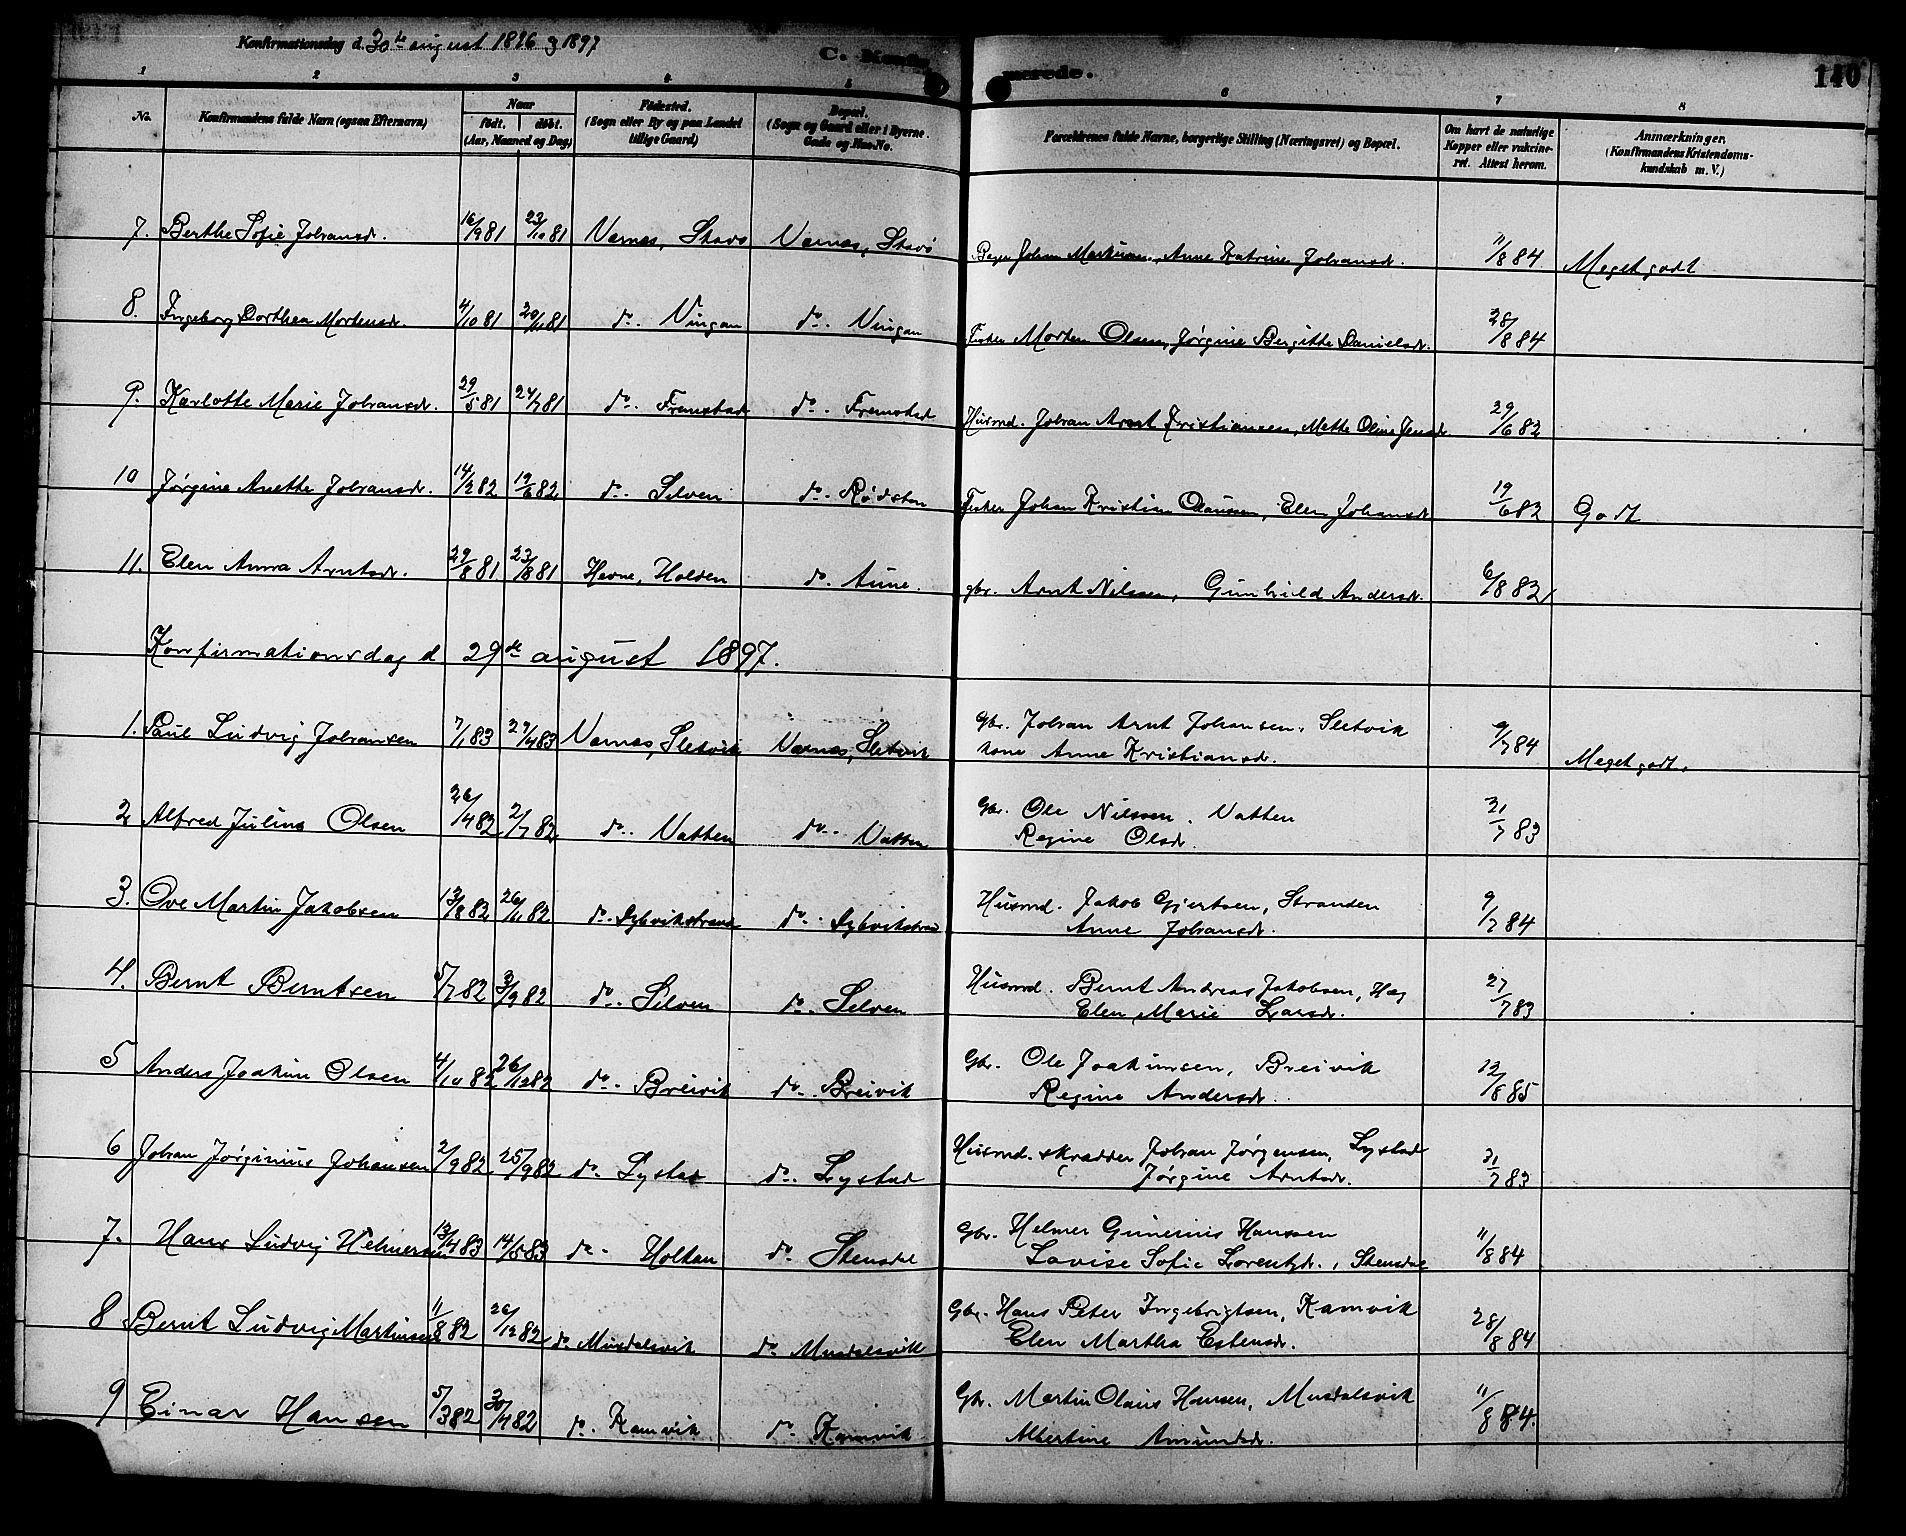 Konfirmationsdag d. 30te august 1896 og 1897
C. Konfirmerede.
140
1 2 3 4 5 6 7 8
No.
Konfirmandens fulde Navn (ogsaa Efternavn)
Naar
født. døbt.
(Aar, Maaned og Dag)
Fødested.
(Sogn eller By og paa Landet
tillige Gaard)
Bopæl.
(Sogn og Gaard eller i Byerne
Gade og Hus-No.
Forældrenes fulde Navne, borgerlige Stilling (Næringsvei) og Bopæl.
Om havt de naturlige
Kopper eller vaccineret. Attest herom.
Anmærkninger.
(Konfirmandens Kristendomskundskab m. V.)
7. Berthe Sofie Johansdr. 16/9 81 23/10 81 Værnes, Stavø Værnes, Stavø Johan Anne Katrine Johansdr. 11/8 84 Meget godt
8. Ingeborg Dorthea Mortensdr. 4/10 81 20/11 81 do. Vingan do. Vingan Fisker Morten Olsen, Jørgine Bergitte Danielsdr. 28/8 84
9. Karlotte Marie Johansdr. 29/5 81 24/7 81 do. Fremstad do. Fremstad Husmd. Johan Arnt Kristiansen, Mette Oline Jensdr. 29/6 82
10 Jørgine Anette Johansdr. 14/2 82 19/6 82 do. Selven do. Rødsten Fisker Johan Kristian Elen Johansdr. 19/6 82 Godt
11. Elen Anna Arntsdr. 29/8 81 23/8 81 Hevne, Holden do. Aune. gbr. Arnt Nilssen, Gunhild Andersdr. 6/8 82
Konfirmationsdag d 29de august 1897.
1. Paul Ludvig Johansen 7/1 83 29/4 83 Værnes, Sletvik Værnes, Sletvik Gbr. Johan Arnt Johansen, Sletvik 9/7 84 Meget godt.
kone Anne Kristiansdr.
2 Alfred Julius Olsen 26/4 82 2/7 82 do. Vatten do. Vatten Gbr. Ole Nilssen, Vatten 31/7 83
Regine Olsdr.
3. Ove Martin Jakobsen 13/8 82 26/11 82 do. Dybvikstrand do. Dybvikstrand Husmd. Jakob Gjertsen, Stranden 9/7 84
Anne Johansdr.
4. Bernt Berntsen 5/7 82 3/9 82 do. Selven do. Selven Husmd. Bernt Andreas Jakobsen, 27/7 83
Elen Marie Larsdr.
5 Anders Joakim Olsen 4/10 82 26/12 82 do. Breivik do. Breivik Gbr. Ole Joakimsen, Breivik 12/8 85
Regine Andersdr.
6 Johan Jørginius Johansen 2/9 82 25/9 82 do. Lystad do. Lystad Husmd. skrædder Johan Jørgensen, Lystad 31/7 83
Jørgine Arntsdr.
7. Hans Ludvig Helmersen 13/4 83 14/5 83 do. Holtan do. Stensdal Gbr. Helmer Gunerius Hanssen 11/8 84
Lovise Sofie Lorentzdr., Stensdal
8 Bernt Ludvig Martinsen 11/8 82 26/12 82 do Musdalsvik do. Musdalsvik Gbr. Hans Peter Ingebrigtsen, Kamvik 28/8 84
Elen Martha Estensdr.
9 Einar Hansen 5/3 82 30/4 82 do. Kamvik do. Kamvik Gbr. Martin Olaus Hansen, Musdalsvik 11/8 84.
Albertine Amundsdr.